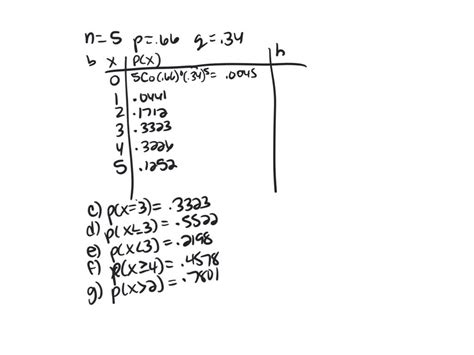 n=5 p=.66 q=.34
b x P(x) h
0 5C0(.66)⁰(.34)⁵= .0045
1 .0441
2 .1712
3 .3323
4 .3226
5 .1252
c) p(x=3)= .3323
d) p(x≤3)= .5522
e) p(x<3)= .2198
f) p(x≥4)= .4578
g) p(x>2)= .7801